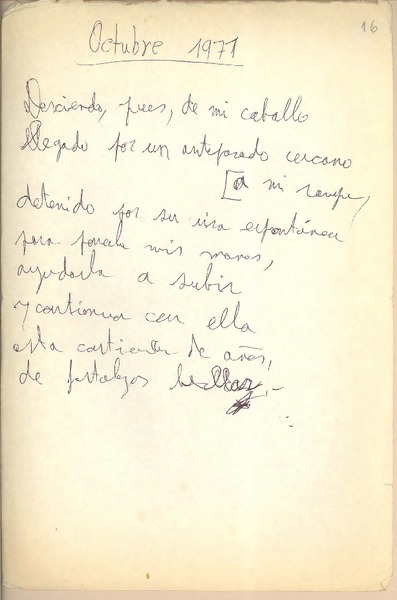 16
Octubre 1971
Desciendo, pues, de mi caballo
llegado por un antepasado cercano
[a mi sangre,
detenido por su risa espontánea
para ponerle mis manos,
ayudarla a subir
y continuar con ella
esta corriente de años,
de